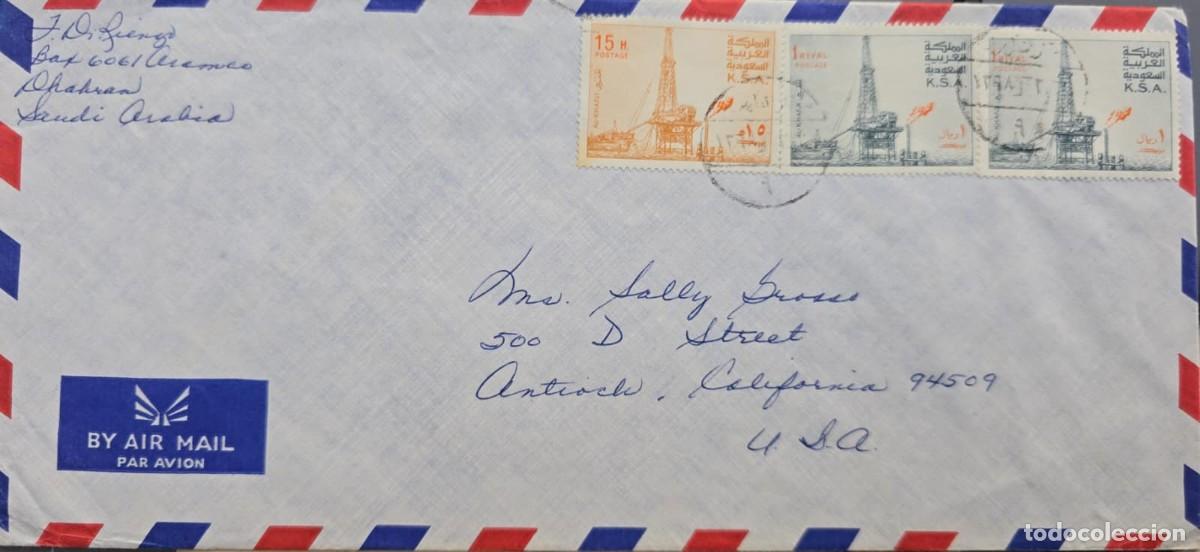 J. DiRienzo
Box 6061 Aramco
Dhahran
Saudi Arabia
15 H.
POSTAGE
المملكة
العربية
السعودية
K.S.A.
AL-KHAFJI
الخفجي
١٥
1 RIYAL
POSTAGE
المملكة
العربية
السعودية
K.S.A.
AL-KHAFJI
١ ريال
1 RIYAL
POSTAGE
المملكة
العربية
السعودية
K.S.A.
١ ريال
Ms. Sally Grosso
500 D Street
Antioch, California 94509
U.S.A.
BY AIR MAIL
PAR AVION
todocoleccion